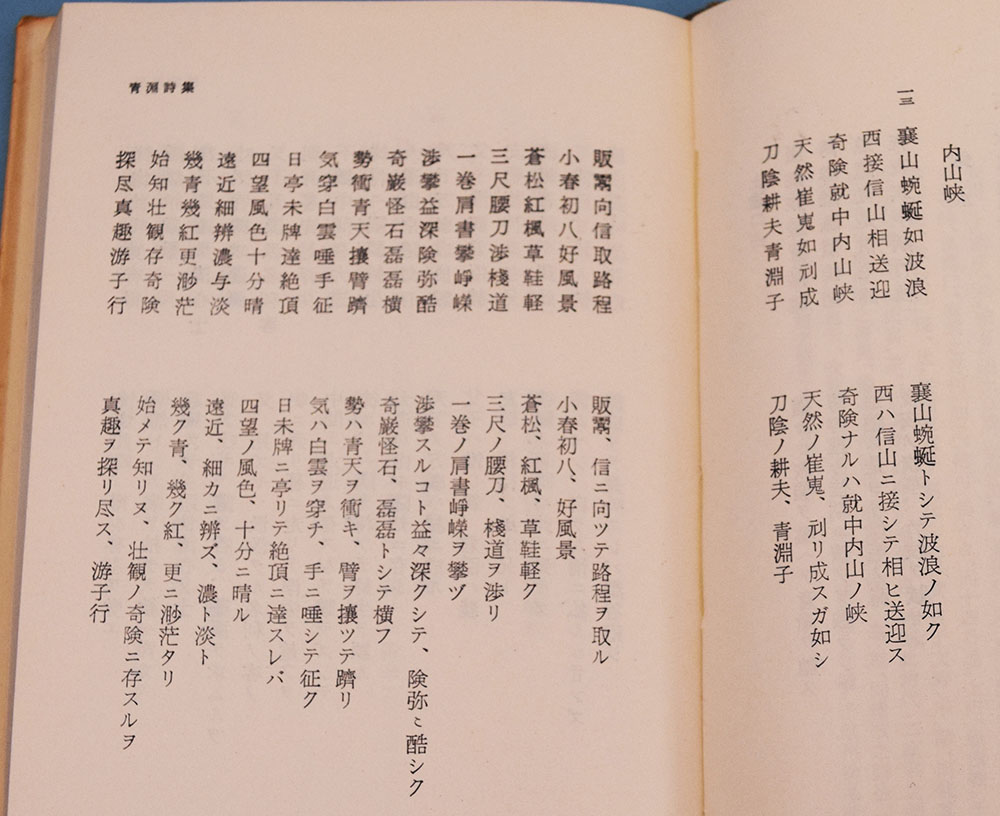 一三
内山峡
襄山蜿蜒如波浪
西接信山相送迎
奇険就中内山峡
天然崔嵬如刓成
刀陰耕夫青淵子
襄山蜿蜒トシテ波浪ノ如ク
西ハ信山ニ接シテ相ヒ送迎ス
奇険ナルハ就中内山ノ峡
天然ノ崔嵬、刓リ成スガ如シ
刀陰ノ耕夫、青淵子
青淵詩集
販鬻向信取路程
小春初八好風景
蒼松紅楓草鞋軽
三尺腰刀渉棧道
一巻肩書攀崢嶸
渉攀益深険弥酷
奇巌怪石磊磊横
勢衝青天攘臂躋
気穿白雲唾手征
日亭未牌達絶頂
四望風色十分晴
遠近細辨濃与淡
幾青幾紅更渺茫
始知壮観存奇険
探尽真趣游子行
販鬻、信ニ向ツテ路程ヲ取ル
小春初八、好風景
蒼松、紅楓、草鞋軽ク
三尺ノ腰刀、棧道ヲ渉リ
一巻ノ肩書崢嶸ヲ攀ヅ
渉攀スルコト益々深クシテ、険弥〻酷シク
奇巌怪石、磊磊トシテ横フ
勢ハ青天ヲ衝キ、臂ヲ攘ツテ躋リ
気ハ白雲ヲ穿チ、手ニ唾シテ征ク
日未牌ニ亭リテ絶頂ニ達スレバ
四望ノ風色、十分ニ晴ル
遠近、細カニ辨ズ、濃ト淡ト
幾ク青、幾ク紅、更ニ渺茫タリ
始メテ知リヌ、壮観ノ奇険ニ存スルヲ
真趣ヲ探リ尽ス、游子行